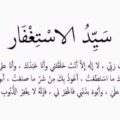 سَيِّدُ الاسْتِغْفَار
رَبِّي ، لا إِلَهَ إِلَّا أَنْتَ خَلَقْتَنِي وَأَنَا عَبْدُكَ ، وَأَنَا عَلَى
مَا اسْتَطَعْتُ ، أَعُوذُ بِكَ مِنْ شَرِّ مَا صَنَعْتُ ، أَبُوءُ
عَلَيَّ ، وَأَبُوءُ بِذَنْبِي فَاغْفِرْ لِي ، فَإِنَّهُ لا يَغْفِرُ الذُّنُوبَ